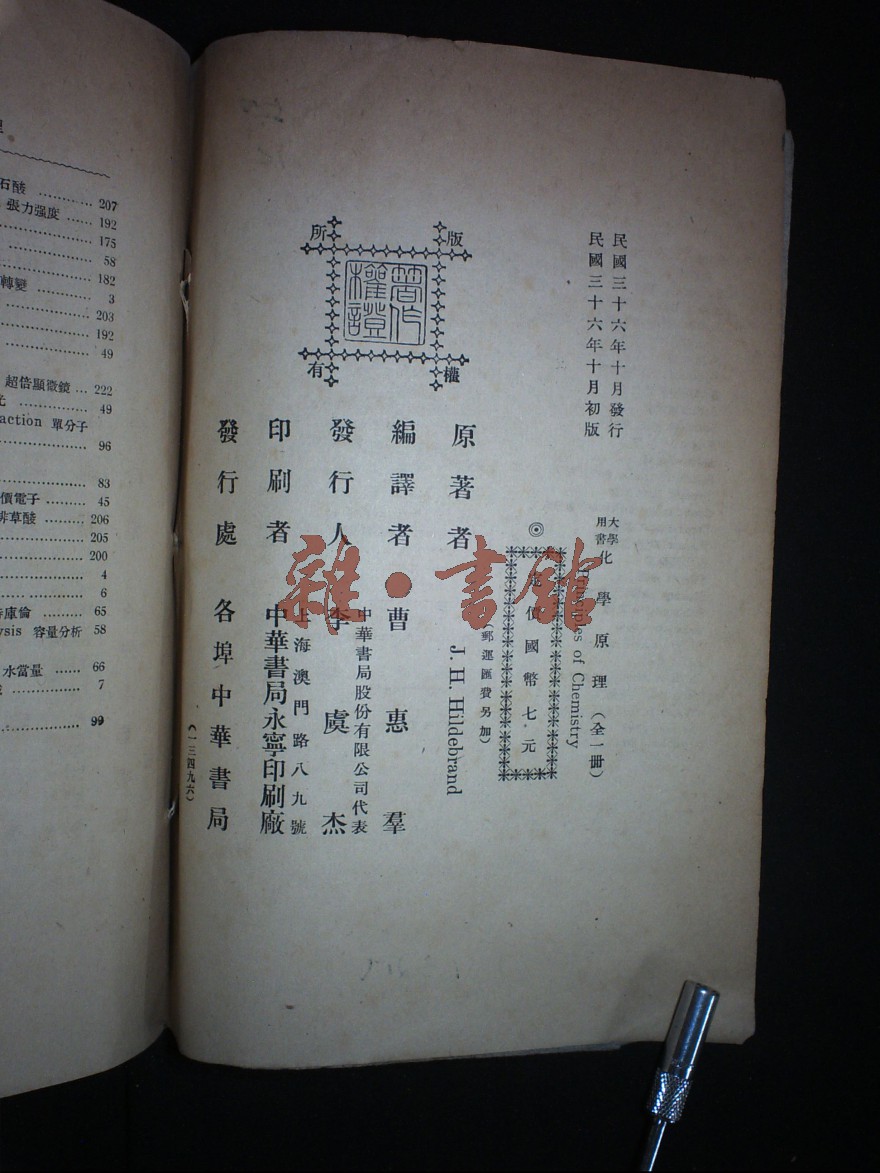 石酸 ……… 207
張力强度 …… 192
175
58
182
轉變 ……… 3
203
192
49
超倍顯微鏡 … 222
49
action 單分子
96
83
價電子 ……… 45
206
205
200
4
6
庫倫 ……… 65
ysis 容量分析 58
水當量 …… 66
7
99
民國三十六年十月發行
民國三十六年十月初版
大學用書
化學原理(全一册)
Principles of Chemistry
◎定價國幣七元
(郵運匯費另加)
版權所有
著作權證
原著者 J. H. Hildebrand
編譯者 曹惠羣
中華書局股份有限公司代表
發行人 李虞杰
上海澳門路八九號
印刷者 中華書局永寧印刷廠
發行處 各埠中華書局
(一三四九六)
雜·書館